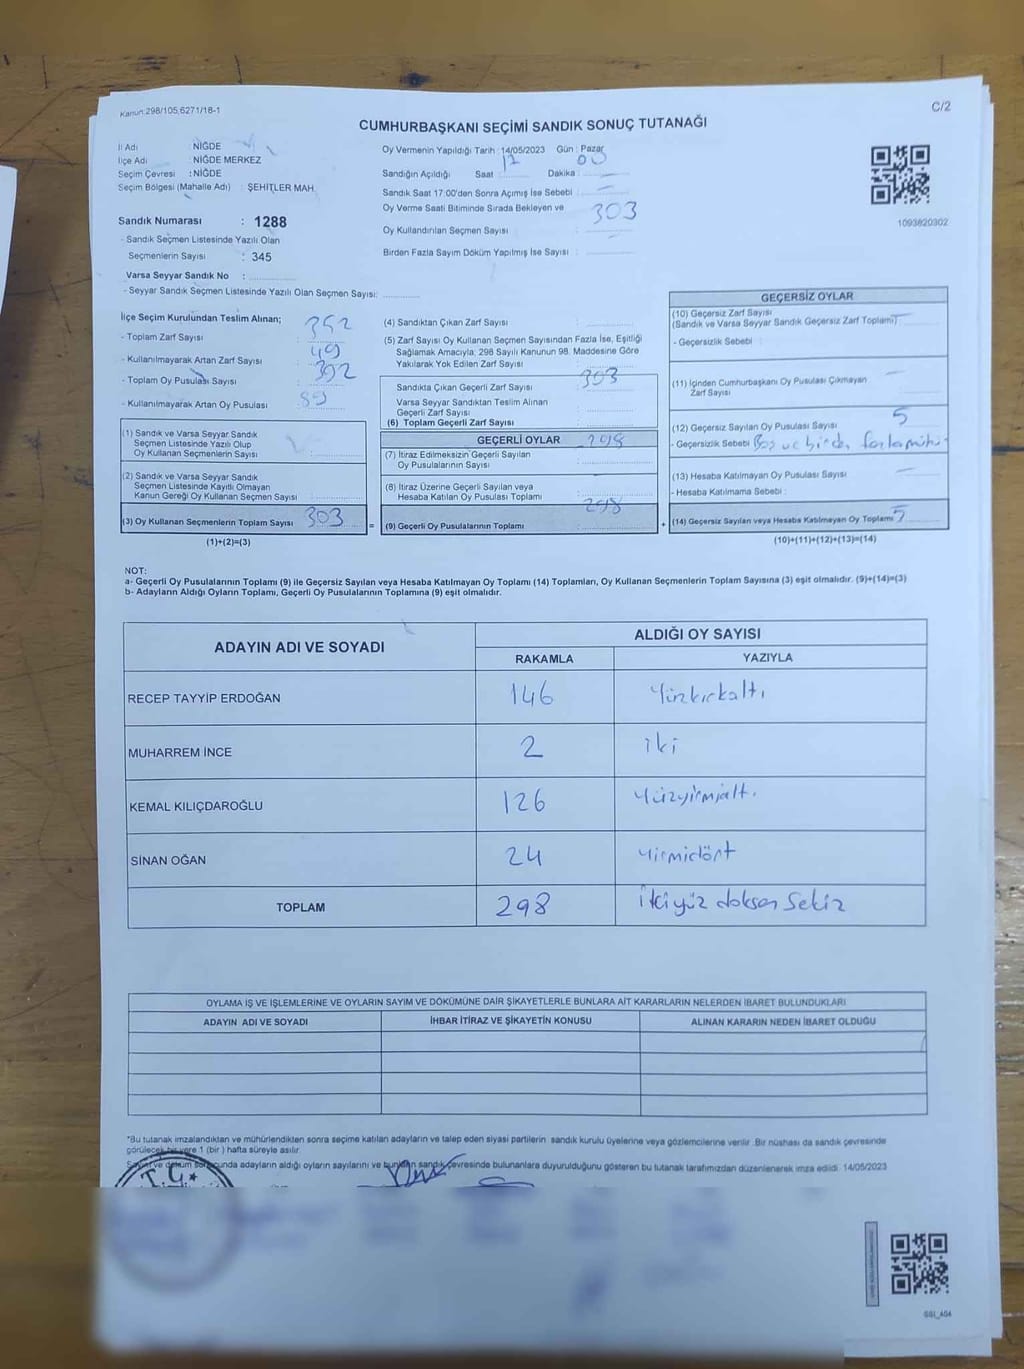 Kanun:298/105,6271/18-1
C/2
CUMHURBAŞKANI SEÇİMİ SANDIK SONUÇ TUTANAĞI
İl Adı : NİĞDE
İlçe Adı : NİĞDE MERKEZ
Seçim Çevresi : NİĞDE
Seçim Bölgesi (Mahalle Adı) : ŞEHİTLER MAH.
Sandık Numarası : 1288
- Sandık Seçmen Listesinde Yazılı Olan
Seçmenlerin Sayısı : 345
Varsa Seyyar Sandık No :
- Seyyar Sandık Seçmen Listesinde Yazılı Olan Seçmen Sayısı:
Oy Vermenin Yapıldığı Tarih : 14/05/2023 Gün : Pazar
Sandığın Açıldığı Saat : 17 Dakika : 00
Sandık Saat 17:00'den Sonra Açımış İse Sebebi :
Oy Verme Saati Bitiminde Sırada Bekleyen ve
Oy Kullandırılan Seçmen Sayısı : 303
Birden Fazla Sayım Döküm Yapılmış İse Sayısı :
1093820302
İlçe Seçim Kurulundan Teslim Alınan;
- Toplam Zarf Sayısı : 352
- Kullanılmayarak Artan Zarf Sayısı : 49
- Toplam Oy Pusulası Sayısı : 392
- Kullanılmayarak Artan Oy Pusulası : 89
(1) Sandık ve Varsa Seyyar Sandık
Seçmen Listesinde Yazılı Olup
Oy Kullanan Seçmenlerin Sayısı :
(2) Sandık ve Varsa Seyyar Sandık
Seçmen Listesinde Kayıtlı Olmayan
Kanun Gereği Oy Kullanan Seçmen Sayısı :
(3) Oy Kullanan Seçmenlerin Toplam Sayısı : 303
(1)+(2)=(3)
(4) Sandıktan Çıkan Zarf Sayısı :
(5) Zarf Sayısı Oy Kullanan Seçmen Sayısından Fazla İse, Eşitliği
Sağlamak Amacıyla; 298 Sayılı Kanunun 98. Maddesine Göre
Yakılarak Yok Edilen Zarf Sayısı :
Sandıkta Çıkan Geçerli Zarf Sayısı : 303
Varsa Seyyar Sandıktan Teslim Alınan
Geçerli Zarf Sayısı :
(6) Toplam Geçerli Zarf Sayısı :
GEÇERLİ OYLAR 298
(7) İtiraz Edilmeksizin Geçerli Sayılan
Oy Pusulalarının Sayısı :
(8) İtiraz Üzerine Geçerli Sayılan veya
Hesaba Katılan Oy Pusulası Toplamı :
= (9) Geçerli Oy Pusulalarının Toplamı : 298
GEÇERSİZ OYLAR
(10) Geçersiz Zarf Sayısı
(Sandık ve Varsa Seyyar Sandık Geçersiz Zarf Toplamı)
- Geçersizlik Sebebi :
(11) İçinden Cumhurbaşkanı Oy Pusulası Çıkmayan
Zarf Sayısı
(12) Geçersiz Sayılan Oy Pusulası Sayısı : 5
- Geçersizlik Sebebi : Boş ve birden fazla mühür
(13) Hesaba Katılmayan Oy Pusulası Sayısı :
- Hesaba Katılmama Sebebi :
+ (14) Geçersiz Sayılan veya Hesaba Katılmayan Oy Toplamı 5
(10)+(11)+(12)+(13)=(14)
NOT:
a- Geçerli Oy Pusulalarının Toplamı (9) ile Geçersiz Sayılan veya Hesaba Katılmayan Oy Toplamı (14) Toplamları, Oy Kullanan Seçmenlerin Toplam Sayısına (3) eşit olmalıdır. (9)+(14)=(3)
b- Adayların Aldığı Oyların Toplamı, Geçerli Oy Pusulalarının Toplamına (9) eşit olmalıdır.
ADAYIN ADI VE SOYADI ALDIĞI OY SAYISI
RAKAMLA YAZIYLA
RECEP TAYYİP ERDOĞAN 146 Yüzkırkaltı
MUHARREM İNCE 2 iki
KEMAL KILIÇDAROĞLU 126 Yüzyirmialtı
SİNAN OĞAN 24 Yirmidört
TOPLAM 298 İkiyüz doksan sekiz
OYLAMA İŞ VE İŞLEMLERİNE VE OYLARIN SAYIM VE DÖKÜMÜNE DAİR ŞİKAYETLERLE BUNLARA AİT KARARLARIN NELERDEN İBARET BULUNDUKLARI
ADAYIN ADI VE SOYADI İHBAR İTİRAZ VE ŞİKAYETİN KONUSU ALINAN KARARIN NEDEN İBARET OLDUĞU
*Bu tutanak imzalandıktan ve mühürlendikten sonra seçime katılan adayların ve talep eden siyasi partilerin sandık kurulu üyelerine veya gözlemcilerine verilir .Bir nüshası da sandık çevresinde
görülecek bir yere 1 (bir) hafta süreyle asılır.
Sayım ve döküm sonucunda adayların aldığı oyların sayılarını ve bunların sandık çevresinde bulunanlara duyurulduğunu gösteren bu tutanak tarafımızdan düzenlenerek imza edildi. 14/05/2023
T.C.